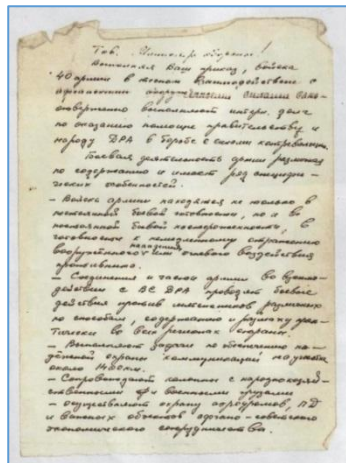 Тов. Министр обороны!
Выполняя Ваш приказ, войска
40 армии в тесном взаимодействии с
афганскими вооруженными силами само-
отверженно выполняют интерн. долг
по оказанию помощи правительству и
народу ДРА в борьбе с силами контрреволюции.
Боевая деятельность армии различна
по содержанию и имеет ряд специфи-
ческих особенностей.
– Войска армии находятся не только в
постоянной боевой готовности, но и во
постоянной боевой настороженности, в
готовности к немедленному отражению
нападения
вооруженного или огневого воздействия
противника.
– Соединения и части армии во взаимо-
действии с ВС ДРА проводят боевые
действия против мятежников различных
по способам, содержанию и размаху прак-
тически во всех регионах страны.
– Выполняют задачи по обеспечению на-
дёжной охраны коммуникаций на участке
около 1480 км.
– Сопровождают колонны с народнохозяй-
ственными и военными грузами
– осуществляют охрану аэродромов, ПД
и важных объектов афгано-советского
экономического сотрудничества.